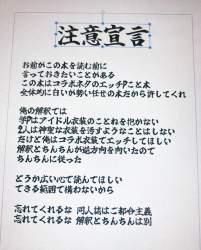 注意宣言
お前がこの本を読む前に
言っておきたいことがある
この本はコラボネタのエッチPこと本
全体的に白いが勢い任せの本だから許してくれ
俺の解釈では
学Pはアイドル衣装のことねを抱かない
2人は神聖な衣装を汚すようなことはしない
だけど俺はコラボ衣装でエッチしてほしい
解釈とちんちんが逆方向を向いたので
ちんちんに従った
どうか広い心で読んでほしい
できる範囲で構わないから
忘れてくれるな 同人誌はご都合主義
忘れてくれるな 解釈とちんちんは別